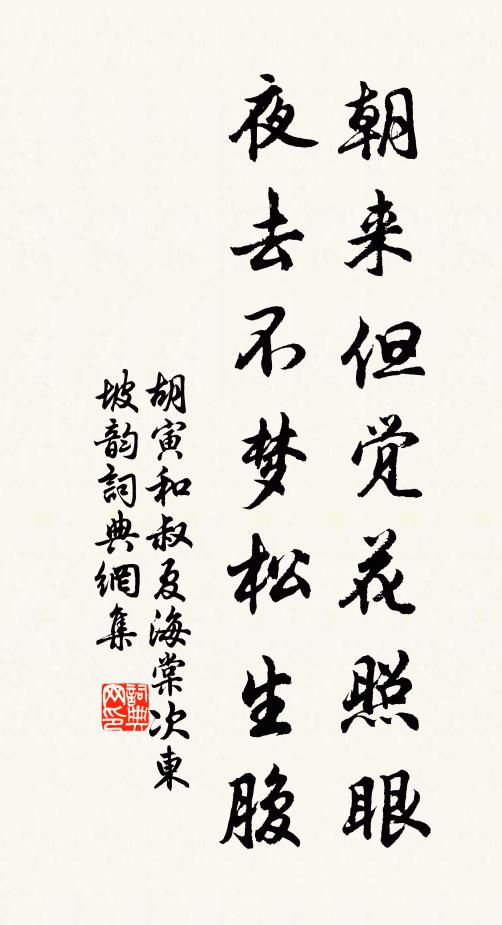 朝来但觉花照眼
夜去不梦松生腹
胡寅和叔夏海棠次東
坡韵詞典網集
詞典网印